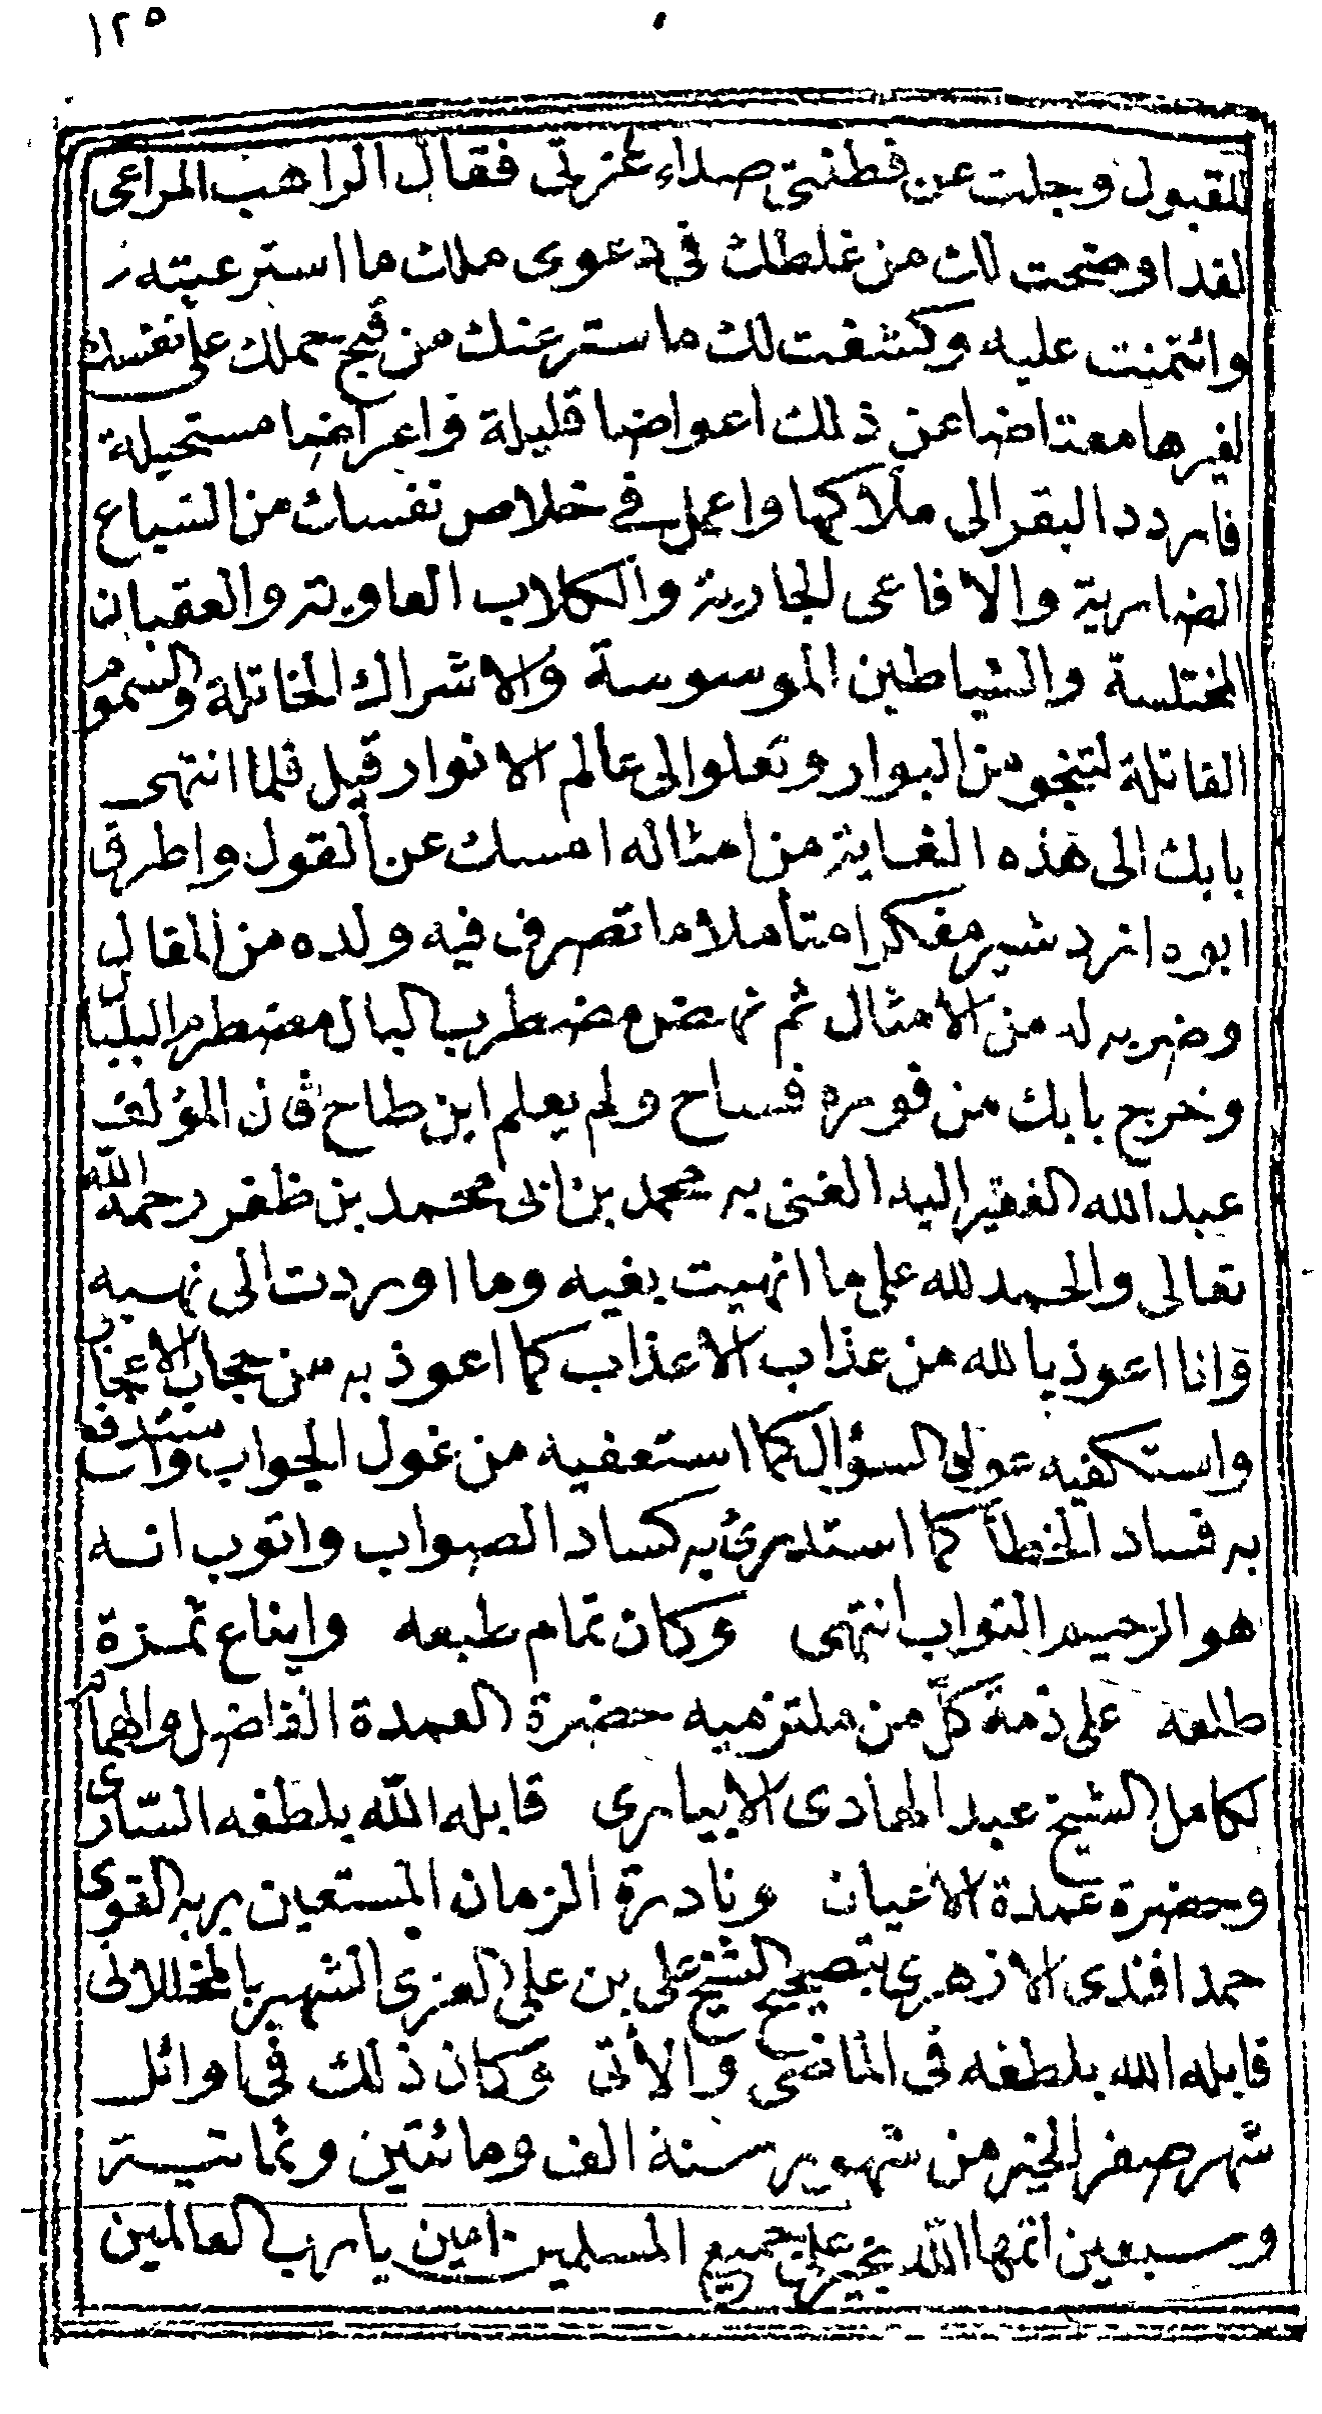 ١٢٥
للقبول وجلت عن فطنتى صداء غرتى فقال الراهب للراعى
لقد اوضحت لك من غلطك فى دعوى ملك ما استرعيته
وائتمنت عليه وكشفت لك ما ستر عنك من قبح حملك على نفسك
لغيرها معتاضا عن ذلك اعواضا قليلة واعراضا مستحيلة
فاردد البقر الى ملاكها واعمل فى خلاص نفسك من السباع
الضارية والافاعى الجارية والكلاب العاوية والعقبان
المختلسة والشياطين الموسوسة والاشراك الخاتلة والسموم
القاتلة لتنجو من البوار وتعلو الى عالم الانوار قيل فلما انتهى
بابك الى هذه الغاية من امثاله امسك عن القول واطرق
ابوه ازدشير مفكرا متأملا ما تصرف فيه ولده من المقال
وضربه له من الامثال ثم نهض مضطرب البال مضطرم البلبال
وخرج بابك من فوره فساح ولم يعلم اين طاح قال المؤلف
عبد الله الفقير اليه الغنى به محمد بن ابى محمد بن ظفر رحمه الله
تعالى والحمد لله على ما انهيت بغيه وما اوردت الى نهيه
وانا اعوذ بالله من عذاب الاعذاب كما اعوذ به من حجاب الاعجاز
واستكفيه عولى السؤال كما استعفيه من غول الجواب واستدفع
به فساد الخطأ كما استدرئ به كساد الصواب واتوب انه
هو الرحيم التواب انتهى وكان تمام طبعه وايناع ثمرة
طلعه على ذمة كل من ملتزميه حضرة العمدة الفاضل والهمام
لكامل الشيخ عبد الهادى الابيارى قابله الله بلطفه السارى
وحضرة عمدة الاعيان ونادرة الزمان المستعين بربه القوى
حمد افندى الازهرى بتصحيح الشيخ على بن على العزى الشهير بالمخللاتى
قابله الله بلطفه فى الماضى والآتى وكان ذلك فى اوائل
شهر صفر الخير من شهور سنة الف ومائتين وثمانية
وسبعين اتمها الله بخير على جميع المسلمين امين يا رب العالمين